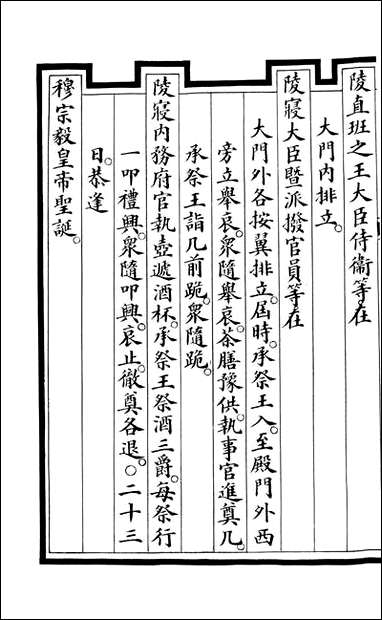 陵直班之王大臣侍衛等在
大門內排立。
陵寢大臣暨派撥官員等在
大門外各按翼排立。屆時。承祭王入至殿門外西
旁立舉哀。衆隨舉哀。茶膳豫供。執事官進奠几。
承祭王詣几前跪。衆隨跪。
陵寢內務府官執壺遞酒杯。承祭王祭酒三爵。每祭行
一叩禮興。衆隨叩興。哀止。徹奠各退。○二十三
日。恭逢
穆宗毅皇帝聖誕。